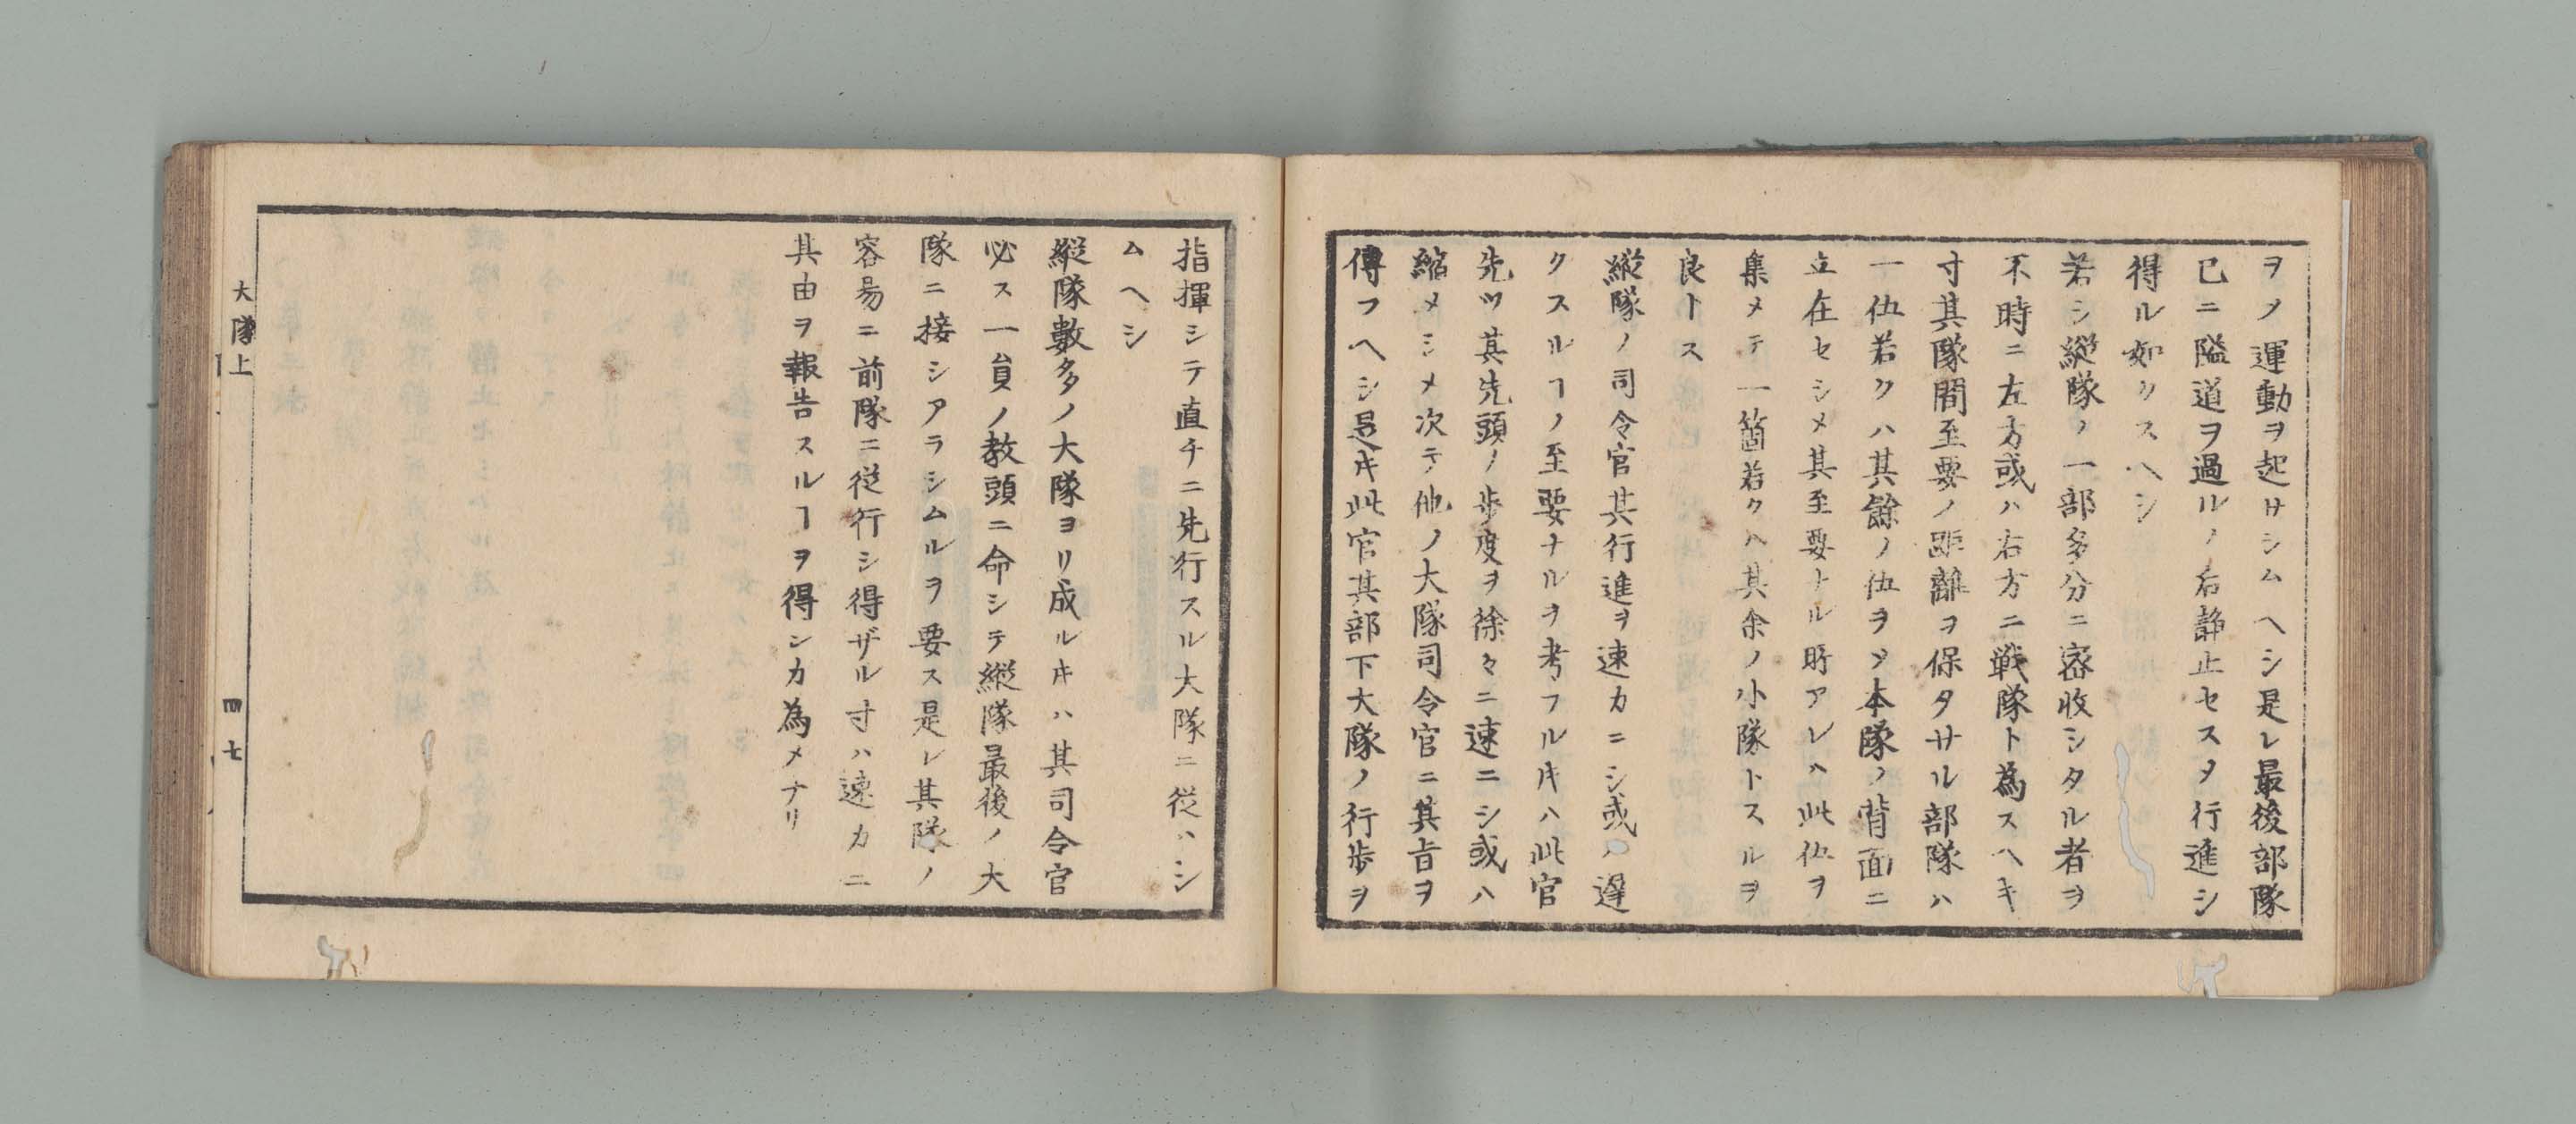 ヲノ運動ヲ起サシムヘシ是レ最後部隊
已ニ隘道ヲ過ルノ后静止セスヲ行進シ
得ル如クスヘシ
若シ縦隊ノ一部多分ニ密收シタル者ヲ
不時ニ左方或ハ右方ニ戦隊ト為スヘキ
寸其隊間至要ノ距離ヲ保タサル部隊ハ
一伍若クハ其餘ノ伍ヲ本隊ノ背面ニ
立在セシメ其至要ナル時アレハ此伍ヲ
集メテ一箇若クハ其余ノ小隊トスルヲ
良トス
縦隊ノ司令官其行進ヲ速カニシ或ハ遅
クスルヿノ至要ナルヲ考フル𪜈ハ此官
先ツ其先頭ノ歩度ヲ徐々ニ速ニシ或ハ
縮メシメ次テ他ノ大隊司令官ニ其旨ヲ
傳フヘシ是此官其部下大隊ノ行歩ヲ
指揮シテ直チニ先行スル大隊ニ従ハシ
ムヘシ
縦隊數多ノ大隊ヨリ成ルハ其司令官
必ス一員ノ教頭ニ命シテ縦隊最後ノ大
隊ニ接シアラシムルヲ要ス是レ其隊ノ
容易ニ前隊ニ従行シ得ザル寸ハ速カニ
其由ヲ報告スルヿヲ得シカ為メナリ
大隊上
四七